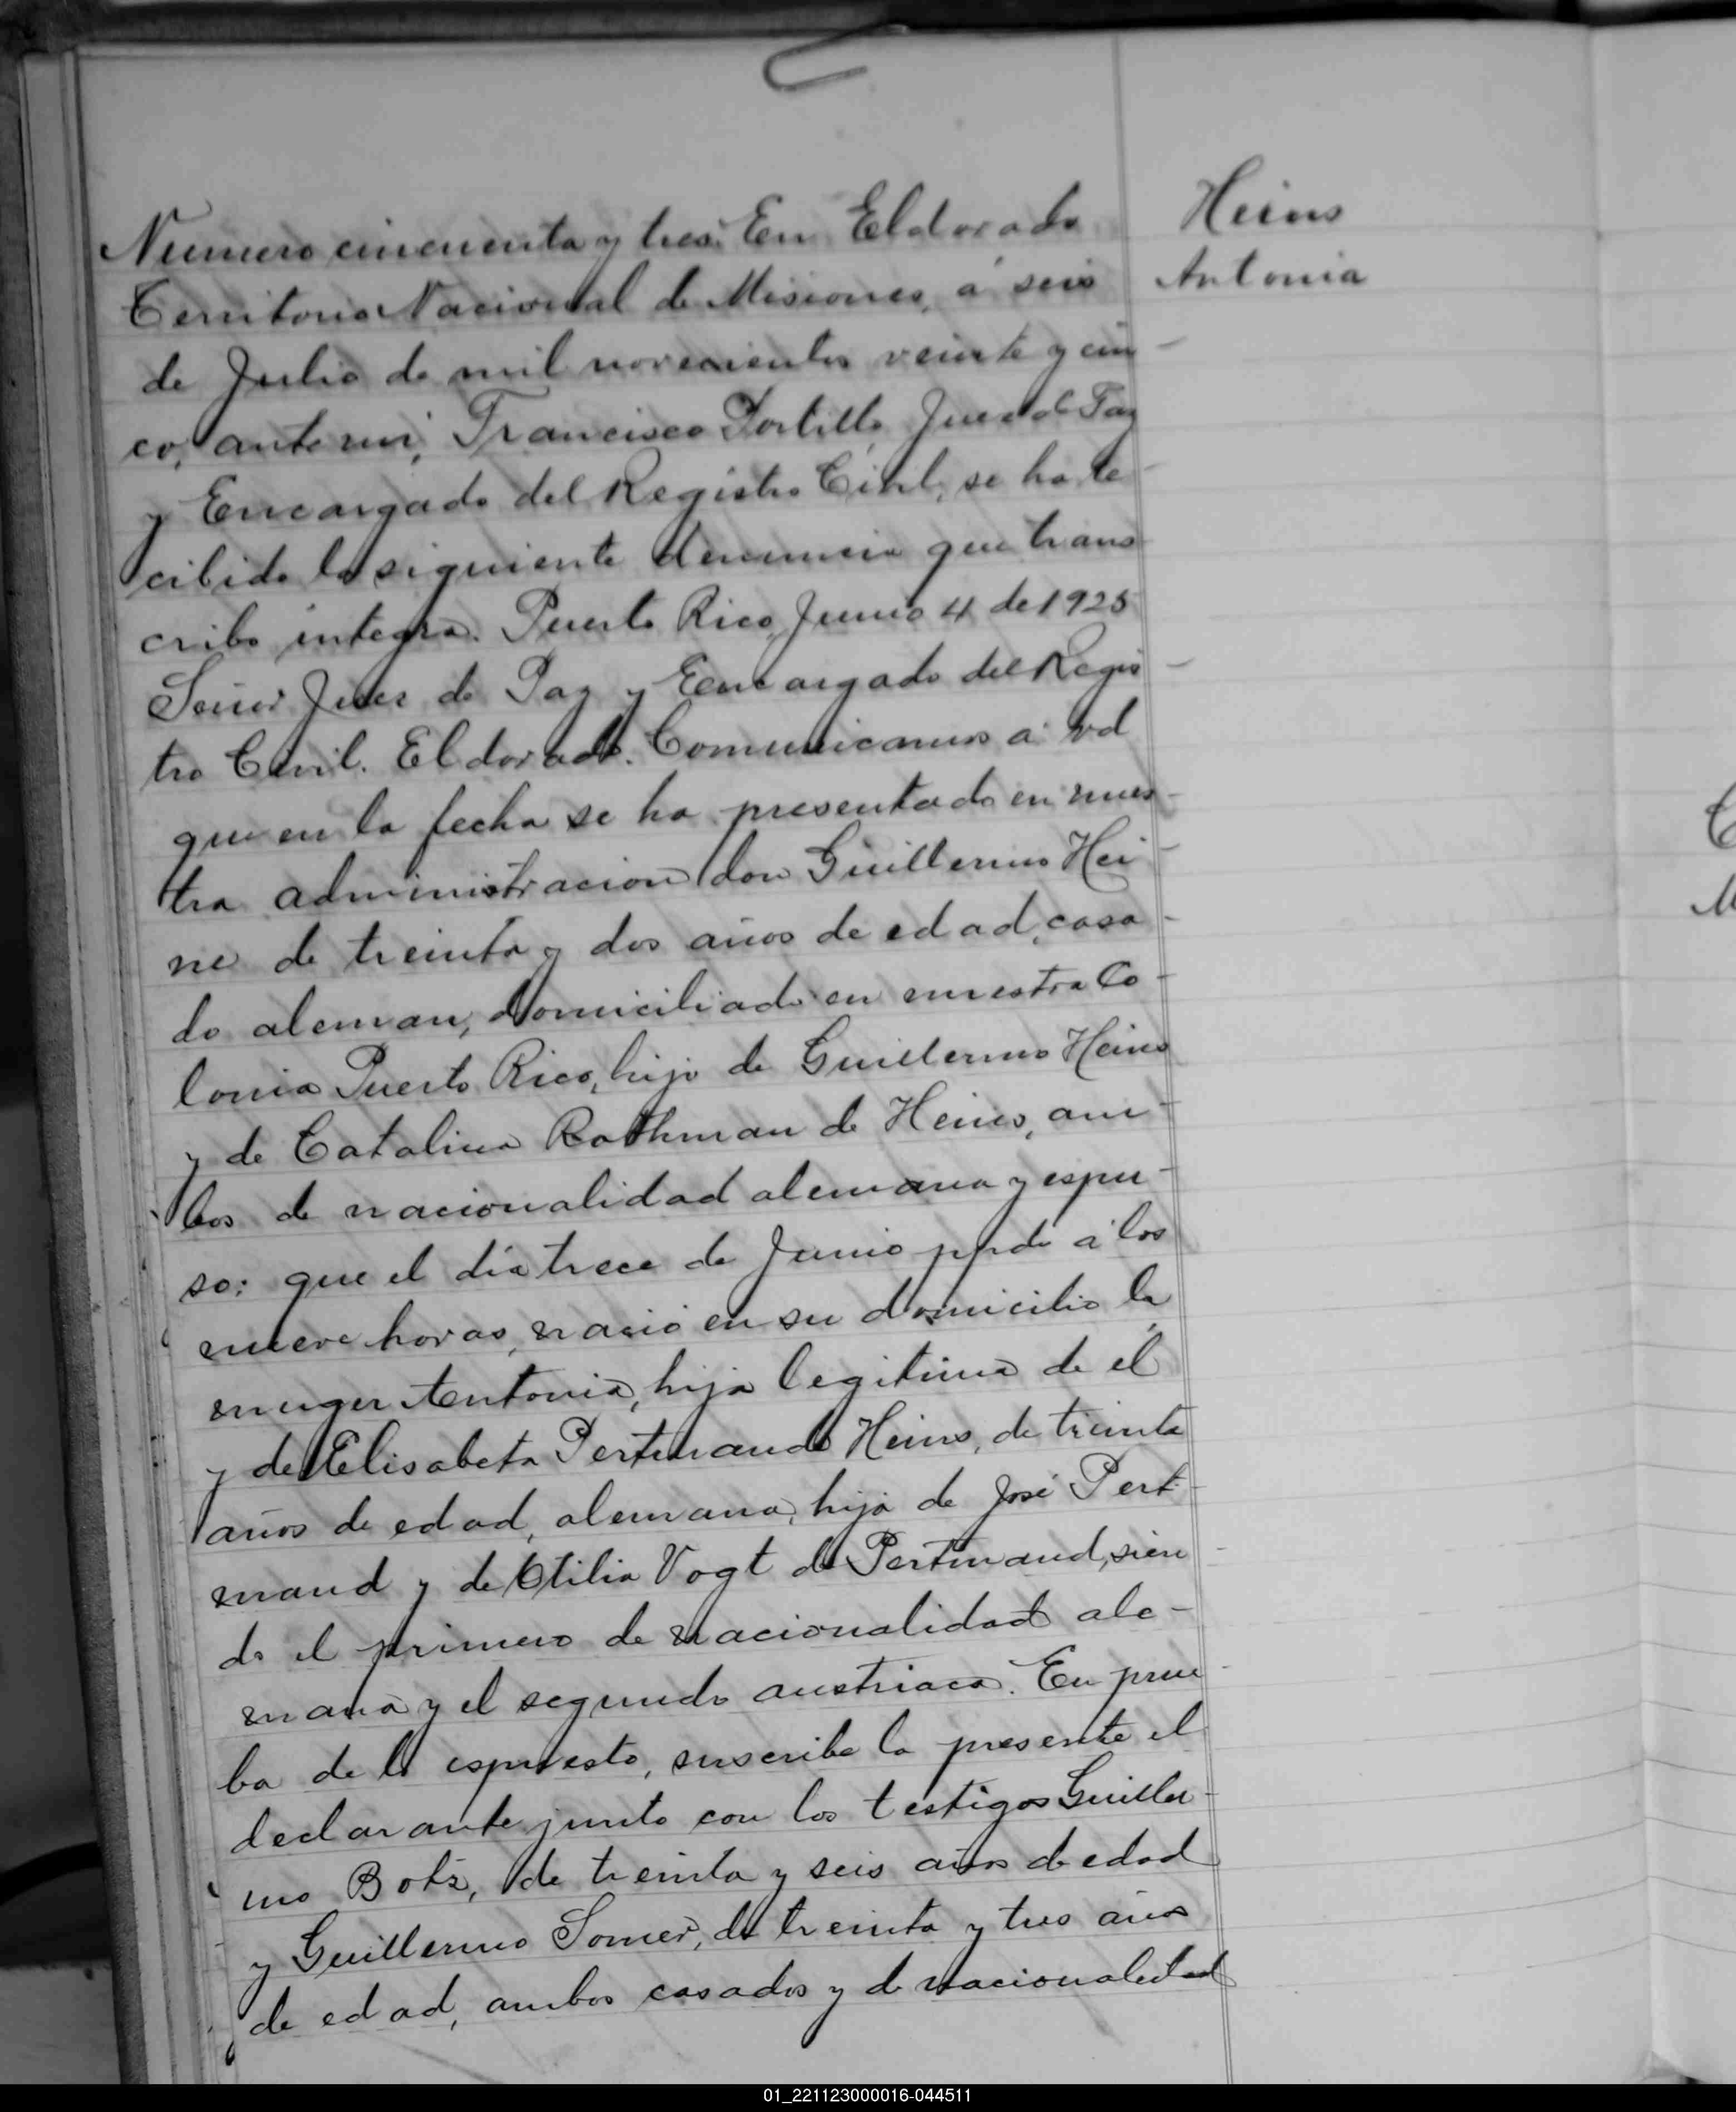 Heins
Antonia
Numero cincuenta y tres. En Eldorado
Territorio Nacional de Misiones, á seis
de Julio de mil novecientos veinte y cin
co, ante mi, Francisco Portillo Juez de Paz
y Encargado del Registro Civil, se ha re
cibido la siguiente denuncia que trans
cribo integra. Puerto Rico, Junio 4 de 1925
Señor Juez de Paz y Encargado del Regis
tro Civil. Eldorado. Comunicamos a vd
que en la fecha se ha presentado en nues
tra administracion don Guillermo Hei
ne de treinta y dos años de edad, casa
do aleman, domiciliado en nuestra Co
lonia Puerto Rico, hijo de Guillermo Heins
y de Catalina Rothman de Heines, am
bos de nacionalidad alemana y espu
so: que el dia trece de Junio ppdo á los
nueve horas, nació en su domicilio la
muger Antonia, hija legitima de el
y de Elisabeta Pertmando Heins, de treinta
años de edad, alemana, hija de José Pert
mand y de Otilia Vogt de Pertmand, sien
do el primero de nacionalidad ale-
mana y el segundo austriaca. En prue
ba de lo espuesto, suscribe la presente el
declarante junto con los testigos Guiller-
mo Botz, de treinta y seis años de edad
y Guillermo Somer, de treinta y tres años
de edad, ambos casados y de nacionalidad
01_221123000016-044511